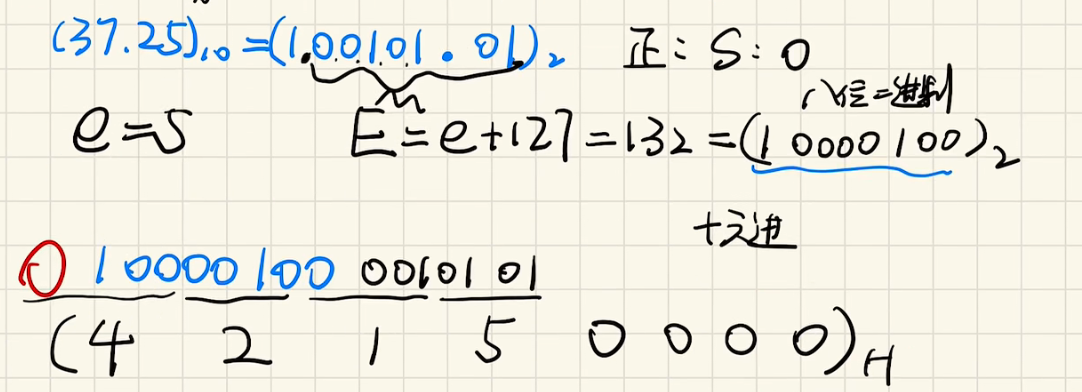 (37.25)₁₀=(1.00101.01)₂ 正:S:0
八位二进制
e=5 E=e+127=132=(10000100)₂
十六进
0 10000100 0010101
(4 2 1 5 0 0 0 0)H